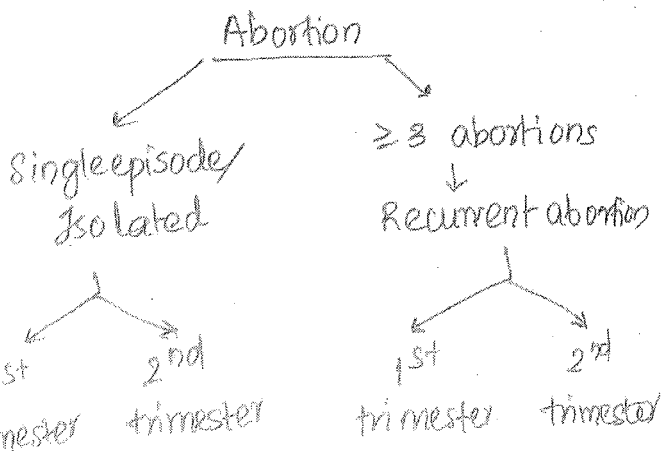 Abortion
Single episode/
Isolated
≥ 3 abortions
Recurrent abortion
st
mester
2nd
trimester
1st
trimester
2nd
trimester